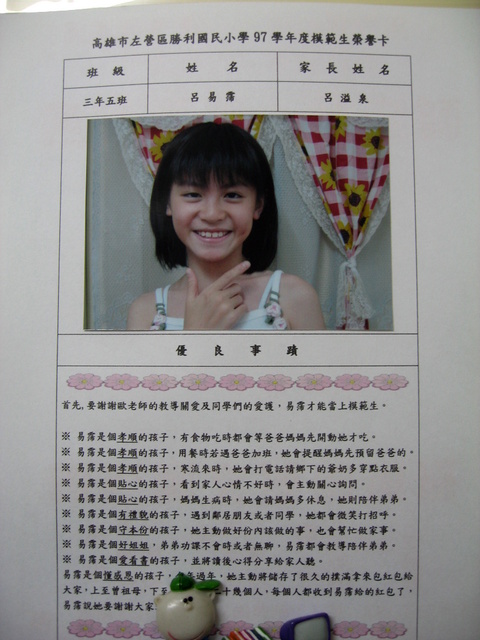 高雄市左營區勝利國民小學97學年度模範生榮譽卡
班 級 姓 名 家 長 姓 名
三年五班 呂易霈 呂溢泉
優 良 事 蹟
首先,要謝謝歐老師的教導關愛及同學們的愛護,易霈才能當上模範生。
※ 易霈是個孝順的孩子,有食物吃時都會等爸爸媽媽先開動她才吃。
※ 易霈是個孝順的孩子,用餐時若遇爸爸加班,她會提醒媽媽先預留爸爸的。
※ 易霈是個孝順的孩子,寒流來時,她會打電話請鄉下的爺奶多穿點衣服。
※ 易霈是個貼心的孩子,看到家人心情不好時,會主動關心詢問。
※ 易霈是個貼心的孩子,媽媽生病時,她會請媽媽多休息,她則陪伴弟弟。
※ 易霈是個有禮貌的孩子,遇到鄰居朋友或者同學,她都會微笑打招呼。
※ 易霈是個守本份的孩子,她主動做好份內該做的事,也會幫忙做家事。
※ 易霈是個好姐姐,弟弟功課不會時或者無聊,易霈都會教導陪伴弟弟。
※ 易霈是個愛看書的孩子,並將讀後心得分享給家人聽。
易霈是個懂感恩的孩子,年過年,她主動將儲存了很久的撲滿拿來包紅包給
大家,上至曾祖母,下至 十幾個人,每個人都收到易霈給的紅包了,
易霈說她要謝謝大家